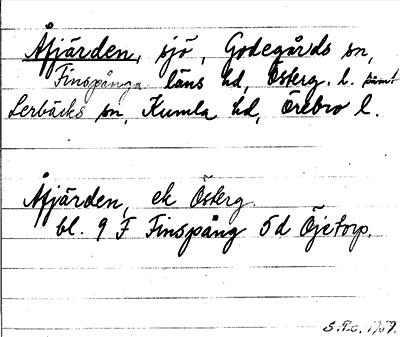 Åfjärden, sjö, Godegårds sn,
Finspånga läns hd, Österg. l. samt
Lerbäcks sn, Kumla hd, Örebro l.
Åfjärden, ek Österg.
bl. 9 F Finspång 5d Öjetorp.